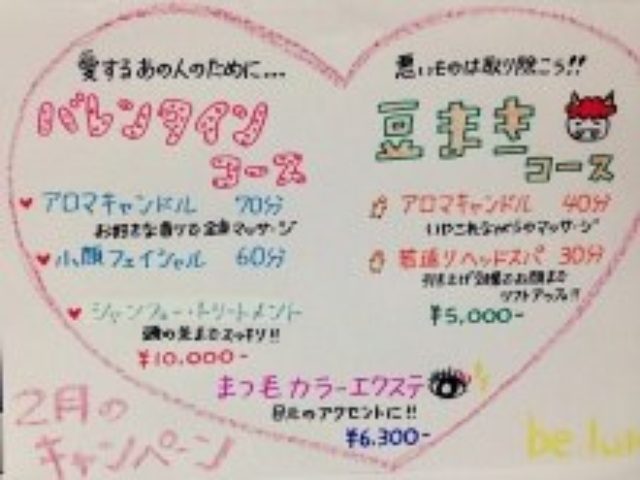 愛するあの人のために...
バレンタイン
コース
♥ アロマキャンドル 70分
お好きな香りで全身マッサージ
♥ 小顔フェイシャル 60分
♥ シャンプー・トリートメント
頭の先までスッキリ!!
¥10,000-
悪いものは取り除こう!!
豆まき
コース
アロマキャンドル 40分
いやこれながらのマッサージ
若返りヘッドスパ 30分
引き上げ効果でお顔まで
リフトアップ!!
¥5,000-
まつ毛カラーエクステ
目元のアクセントに!!
¥6,300-
2月の
キャンペーン